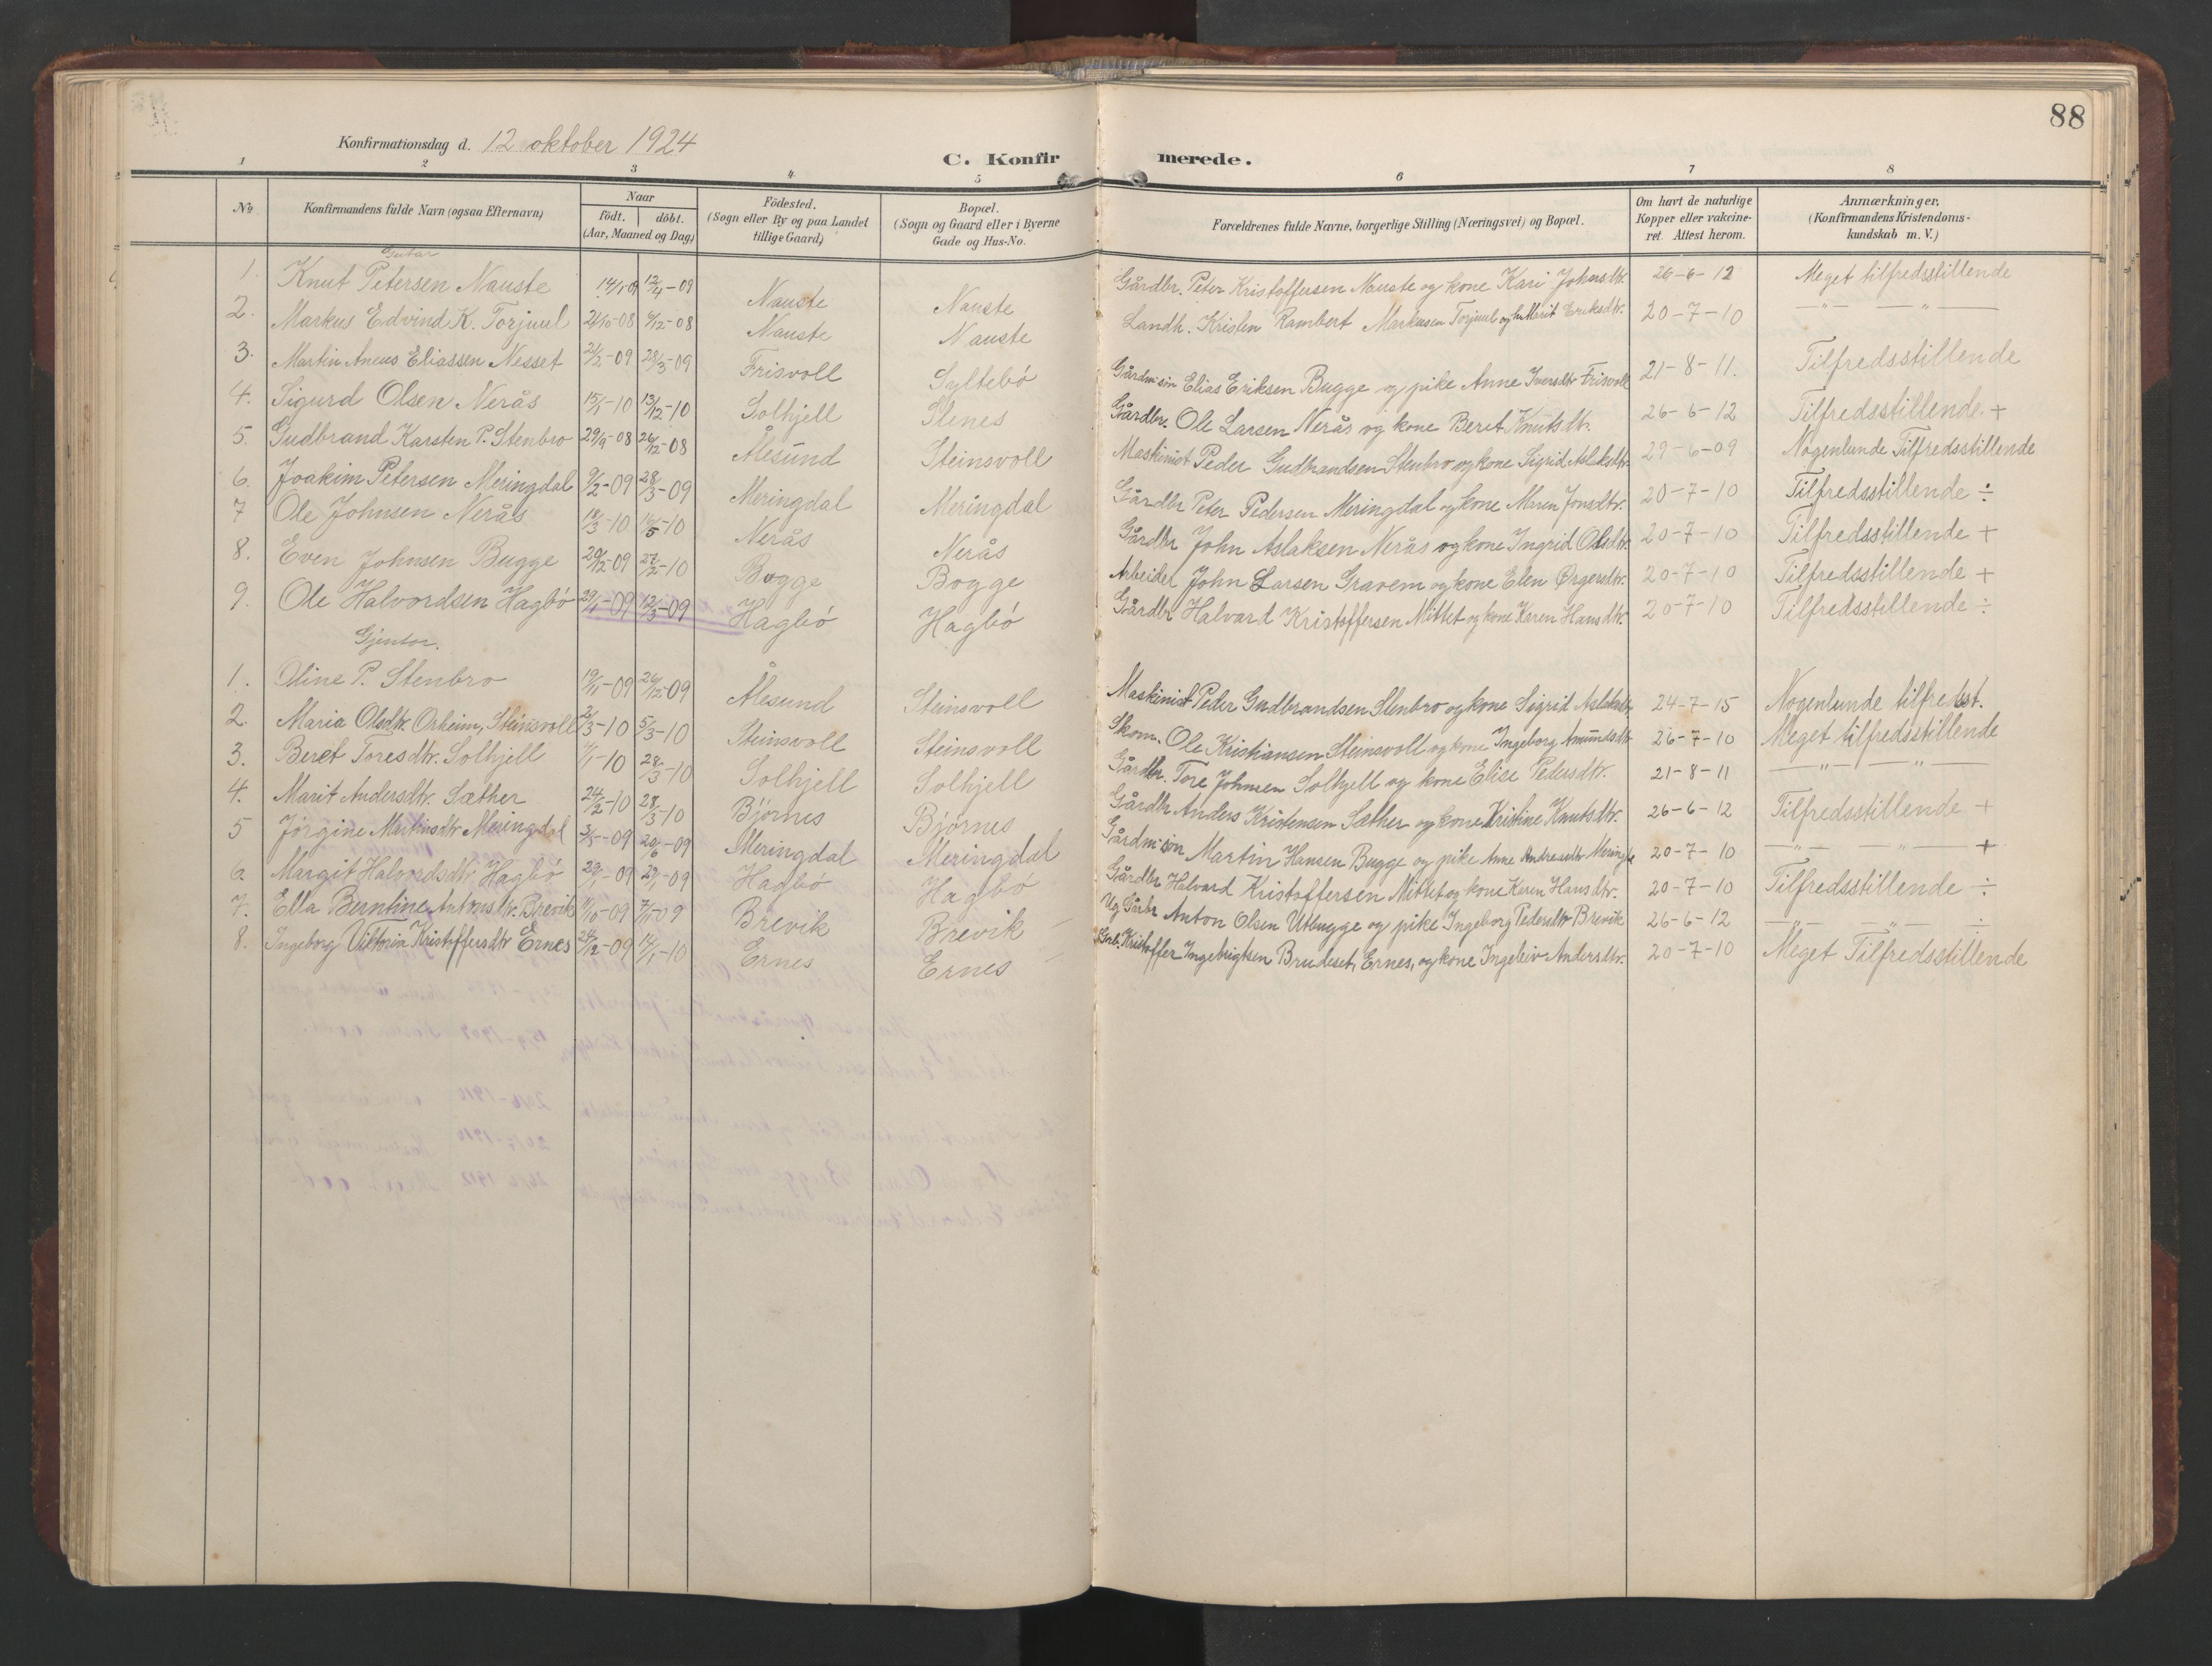 88
Konfirmationsdag d. 12 oktober 1924
C. Konfir merede.
1 2 3 4 5 6 7 8
No
Konfirmandens fulde Navn (ogsaa Efternavn)
Naar
födt. döbt.
(Aar, Maaned og Dag)
Födested.
(Sogn eller By og paa Landet
tillige Gaard)
Bopæl.
(Sogn og Gaard eller i Byerne
Gade og Hus-No.
Forældrenes fulde Navne, borgerlige Stilling (Næringsvei) og Bopæl.
Om havt de naturlige
Kopper eller vakcine-
ret. Attest herom.
Anmærkninger.
(Konfirmandens Kristendoms-
kundskab m. V.)
Gutar
1. Knut Petersen Nauste 14/1-09 12/4-09 Nauste Nauste Gårdbr. Peter Kristoffersen Nauste og kone Kari Johnsdtr. 26-6-12 Meget tilfredsstillende
2. Markus Edvind K. Torjuul 21/10-08 6/12-08 Nauste Nauste Landh. Kristen Rambert Markusen Torjuul og hu Marit Eriksdtr. 20-7-10 — " — — " —
3. Martin Aneus Eliassen Nesset 21/2-09 28/3-09 Frisvoll Syltebö Gårdm. sön Elias Eriksen Bugge og pike Anne Iversdtr Frisvoll 21-8-11. Tilfredsstillende
4. Sigurd Olsen Nerås 15/1-10 13/12-10 Solhjell Slenes Gårdbr. Ole Larsen Nerås og kone Beret Knutsdtr. 26-6-12 Tilfredsstillende. +
5. Gudbrand Karsten P. Stenbro 29/9-08 26/12-08 Ålesund Steinsvoll Maskinist Peder Gudbrandsen Stenbro og kone Sigrid Aslaksdtr. 29-6-09 Nogenlunde Tilfredsstillende
6. Joakim Petersen Meringdal 9/2-09 28/3-09 Meringdal Meringdal Gårdbr Peter Pedersen Meringdal og kone Maren Jonsdtr. 20-7-10 Tilfredsstillende ÷
7 Ole Johnsen Nerås 18/3-10 16/5-10 Nerås Nerås Gårdbr John Aslaksen Nerås og kone Ingrid Olsdtr. 20-7-10 Tilfredsstillende +
8. Even Johnsen Bugge 20/12-09 27/2-10 Bogge Bogge Arbeider John Larsen Gravem og kone Elen Ørgersdtr. 20-7-10 Tilfredsstillende +
9. Ole Halvordsen Hagbö 29/1-09 12/3-09 Hagbö Hagbö Gårdbr Halvard Kristoffersen Mittet og kone Karen Hansdtr. 20-7-10 Tilfredsstillende ÷
Gjentor.
1. Oline P. Stenbro 19/11-09 26/12-09 Ålesund Steinsvoll Maskinist Peder Gudbrandsen Stenbro og kone Sigrid Aslaksdtr. 24-7-15 Nogenlunde tilfredsst.
2. Maria Olsdtr. Orheim, Steinsvoll 2/3-10 5/3-10 Steinsvoll Steinsvoll Skom. Ole Kristiansen Steinsvoll og kone Ingeborg Amundsdtr 26-7-10 Meget tilfredsstillende
3. Beret Toresdtr. Solhjell 11/1-10 28/3-10 Solhjell Solhjell Gårdbr. Tore Johnsen Solhjell og kone Elise Pedersdtr. 21-8-11 — " — — " —
4. Marit Andersdtr. Sæther 24/2-10 28/3-10 Björnes Björnes Gårdbr Anders Kristensen Sæther og kone Kristine Knutsdtr. 26-6-12 Tilfredsstillende +
5 Jörgine Martinsdtr Meringdal 3/5-09 20/6-09 Meringdal Meringdal Gårdm. sön Martin Hansen Bugge og pike Anne Andreasdtr 20-7-10 — " — " — +
6 Margit Halvordsdtr Hagbö 29/1-09 29/1-09 Hagbö Hagbö Gårdbr Halvard Kristoffersen Mittet og kone Karen Hansdtr. 20-7-10 Tilfredsstillende ÷
7. Ella Berntine Antonsdtr. Brevik 11/10-09 7/11-09 Brevik Brevik Ug Gårbr Anton Olsen Utbugge og pike Ingeborg Pedersdtr Brevik 26-6-12 — " — — ÷
8. Ingeborg Viktoria Kristoffersdtr Ernes 24/12-09 14/1-10 Ernes Ernes Kristoffer Ingebrigtsen Brudeset, Ernes, og kone Ingeleiv Andersdtr. 20-7-10 Meget Tilfredsstillende